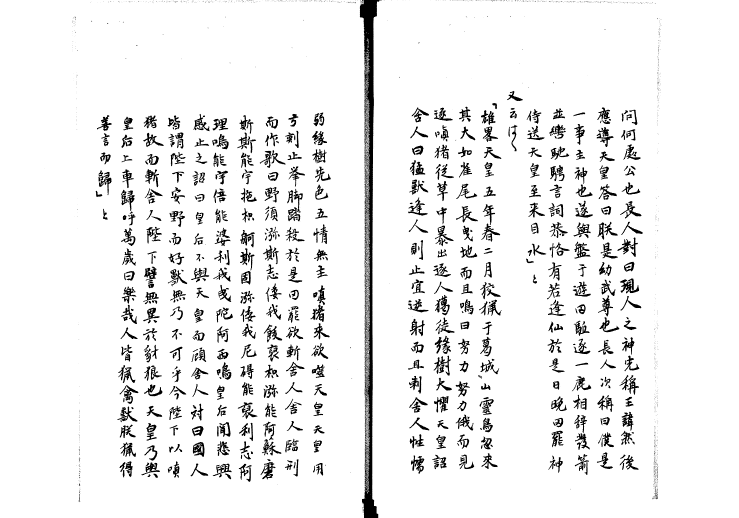 問何處公也長人對曰現人之神先稱王諱然後
應噵天皇答曰朕是幼武尊也長人次稱曰僕是
一事主神也遂與盤于遊田駈逐一鹿相辞發箭
並轡馳騁言詞恭恪有若逢仙於是日晚田罷神
侍送天皇至来目水」と
又云く
「雄畧天皇五年春二月挍猟于葛城山靈鳥忽来
其大如雀尾長曳地而且鳴曰努力努力俄而見
逐嗔猪従草中暴出逐人獦徒緣樹大懼天皇詔
舎人曰猛獣逢人則止宜逆射而且刺舎人性懦
弱緣樹失色五情無主嗔猪来欲噬天皇天皇用
弓刺止挙脚踏殺於是田罷欲斬舎人舎人臨刑
而作歌曰野須瀰斯志倭我飫裒枳瀰能阿蘇磨
斯斯能宇拖枳舸斯固瀰倭我尼碍能裒利志阿
理嗚能宇倍能婆利我曳陀阿西嗚皇后聞悲興
感止之詔曰皇后不與天皇而顧舎人対曰國人
皆謂陛下安野而好獣無乃不可乎今陛下以嗔
猪故而斬舎人陛下譬無異於豺狼也天皇乃與
皇后上車歸呼萬歳曰樂哉人皆猟禽獣朕猟得
善言而歸」と